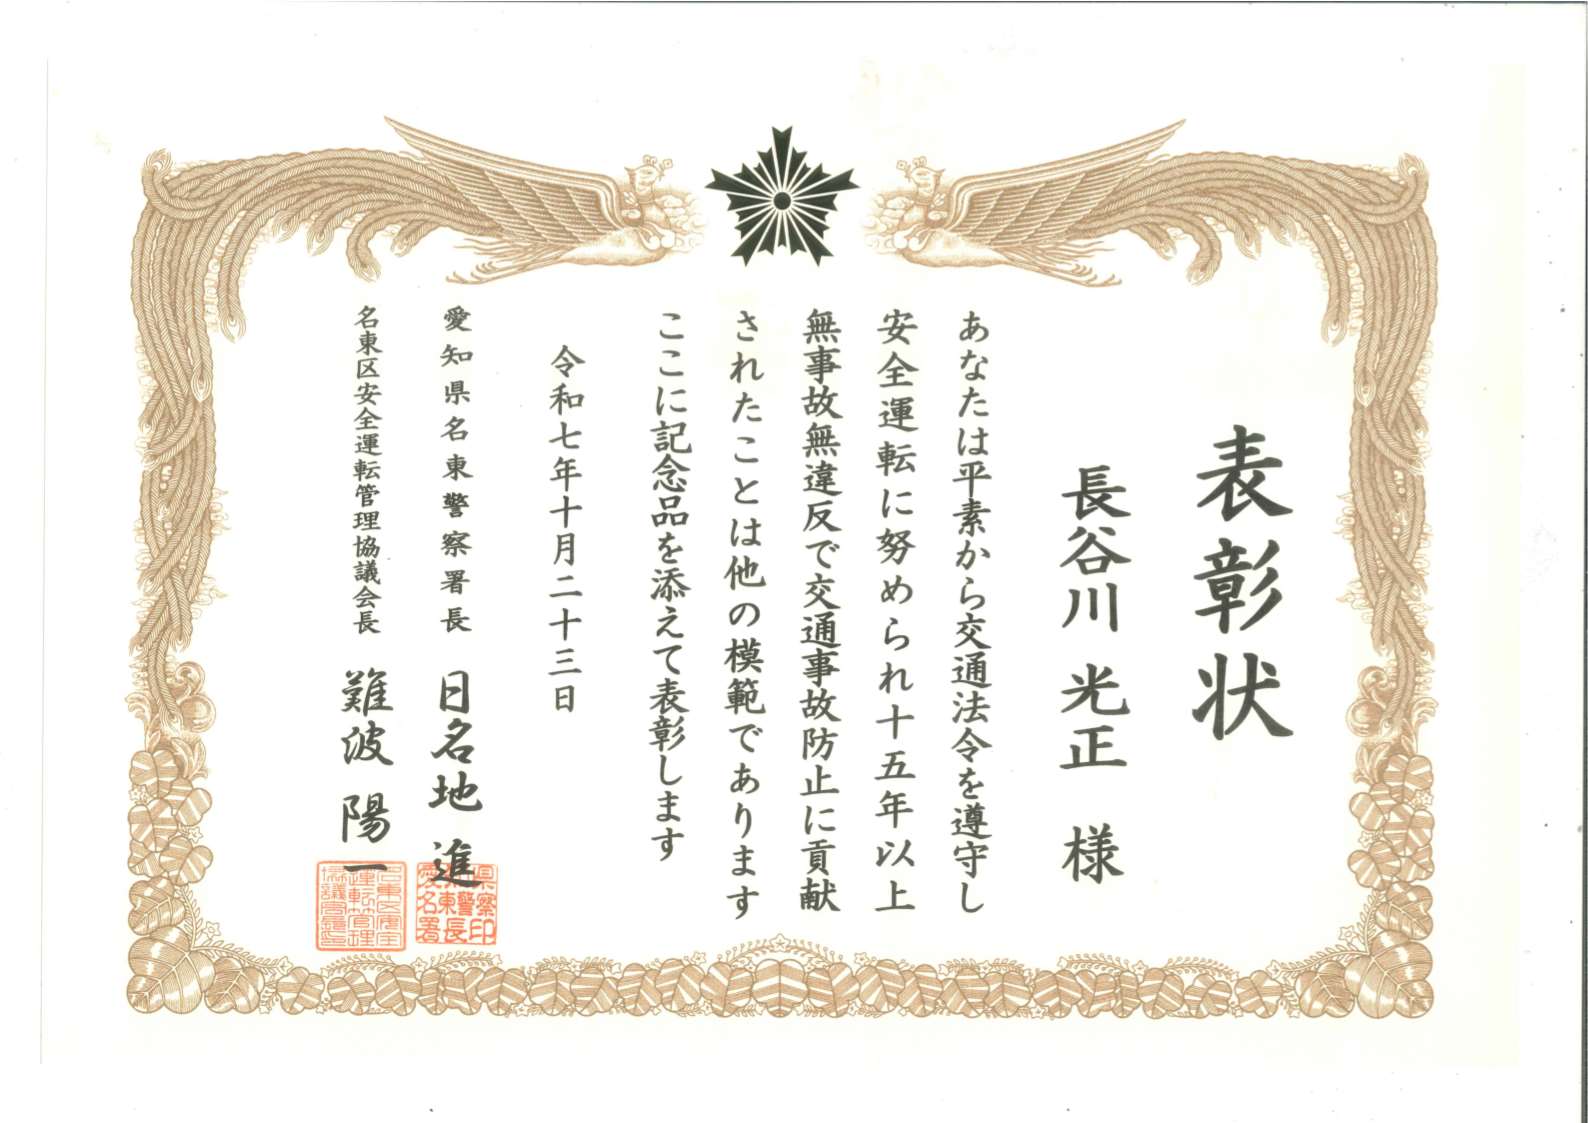 表彰状
長谷川 光正 様
あなたは平素から交通法令を遵守し
安全運転に努められ十五年以上
無事故無違反で交通事故防止に貢献
されたことは他の模範であります
ここに記念品を添えて表彰します
令和七年十月二十三日
愛知県名東警察署長 日名地 進
名東区安全運転管理協議会長 難波 陽一